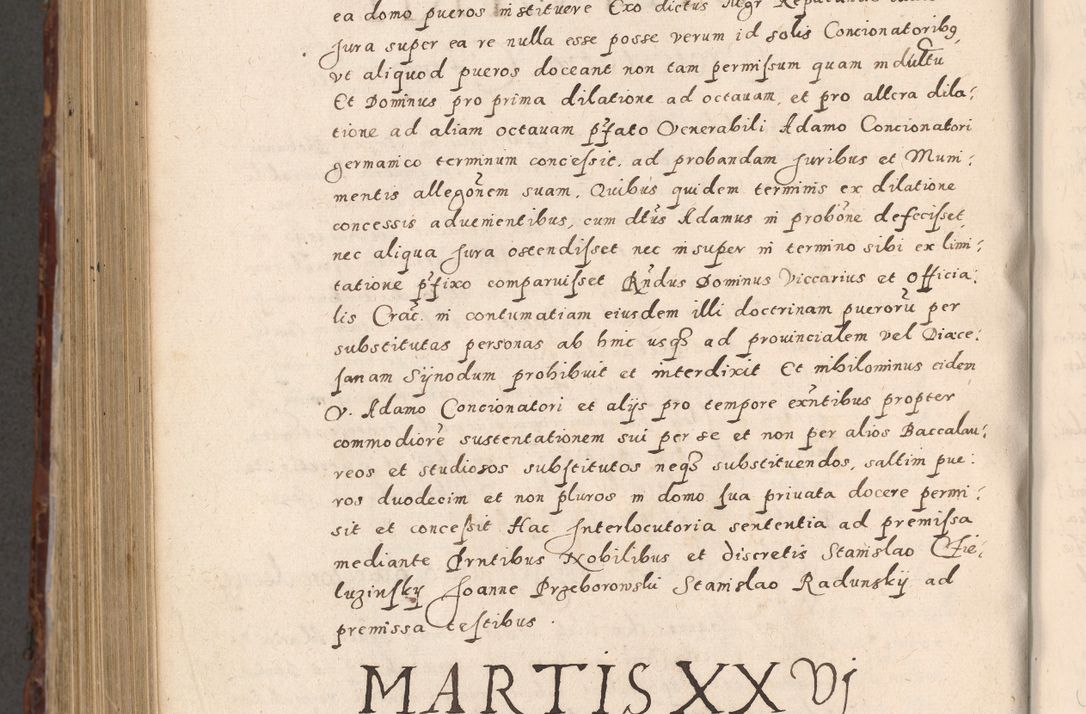 ea domo pueros instituere Exo dictus Mgr
Jura super ea re nulla esse posse verum id solis Concionatoribꝫ
vt aliquod pueros doceant non tam permissum quam indultū
Et Dominus pro prima dilatione ad octauam, et pro altera dila:
tione ad aliam octauam pr̄fato Venerabili Adamo Concionatori
germanico terminum concessit, ad probandam Juribus et Muni:
mentis allegōnem suam, Quibus quidem terminis ex dilatione
concessis aduenientibus, cum dtūs Adamus in probōne defecisset
nec aliqua Jura ostendisset nec insuper in termino sibi ex limi:
tatione pr̄fixo comparuisset Rn̄dus Dominus Viccarius et officia:
lis Crac̄. in contumatiam eiusdem illi doctrinam puerorū per
substitutas personas ab hinc usqꝫ ad prouincialem vel Diœce:
sanam Synodum prohibuit et interdixit Et nihilominus eidem
V. Adamo Concionatori et alijs pro tempore exn̄tibus propter
commodiorē sustentationem sui per se et non per alios Baccalau:
reos et studiosos substitutos neqꝫ substituendos, saltim pue:
ros duodecim et non pluros in domo sua priuata docere permi:
sit et concessit Hac Interlocutoria sententia ad premissa
mediante Prntibus Nobilibus et discretis Stanislao Chie:
luzinsky Joanne Przeborowski Stanislao Radunsky ad
premissa testibus.
MARTIS XXVj